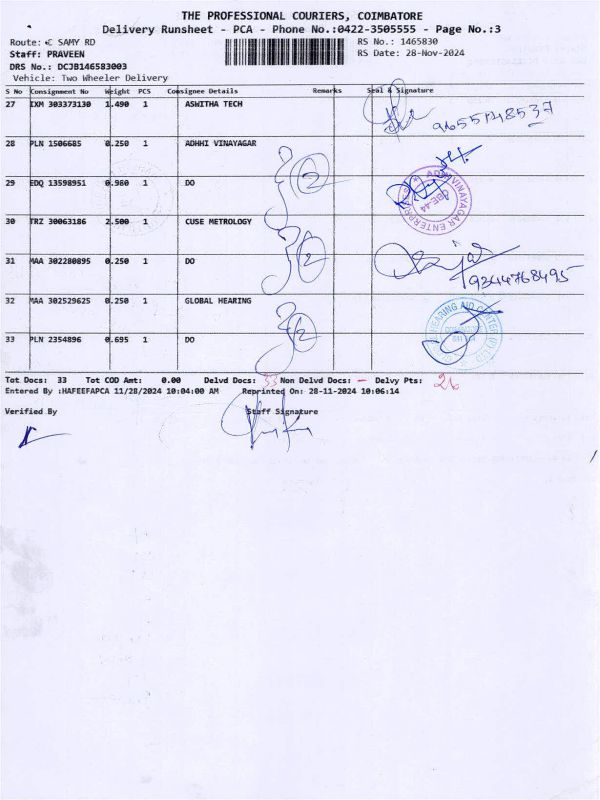 THE PROFESSIONAL COURIERS, COIMBATORE
Delivery Runsheet - PCA - Phone No.:0422-3505555 - Page No.:3
Route: C SAMY RD RS No.: 1465830
Staff: PRAVEEN RS Date: 28-Nov-2024
DRS No.: DCJB146583003
Vehicle: Two Wheeler Delivery
S No Consignment No Weight PCS Consignee Details Remarks Seal & Signature
27 IXM 303373130 1.490 1 ASWITHA TECH 9655148537
28 PLN 1506685 0.250 1 ADHHI VINAYAGAR
29 EDQ 13598951 0.980 1 DO 2 VINAYAGAR ENTERPRISES CBE-44
30 TRZ 30063186 2.500 1 CUSE METROLOGY
31 MAA 302280895 0.250 1 DO 2 9344768495
32 MAA 302529625 0.250 1 GLOBAL HEARING
33 PLN 2354896 0.695 1 DO 2 HEARING AID CENTER
Tot Docs: 33 Tot COD Amt: 0.00 Delvd Docs: 33 Non Delvd Docs: - Delvy Pts: 26
Entered By :HAFEEFAPCA 11/28/2024 10:04:00 AM Reprinted On: 28-11-2024 10:06:14
Verified By Staff Signature